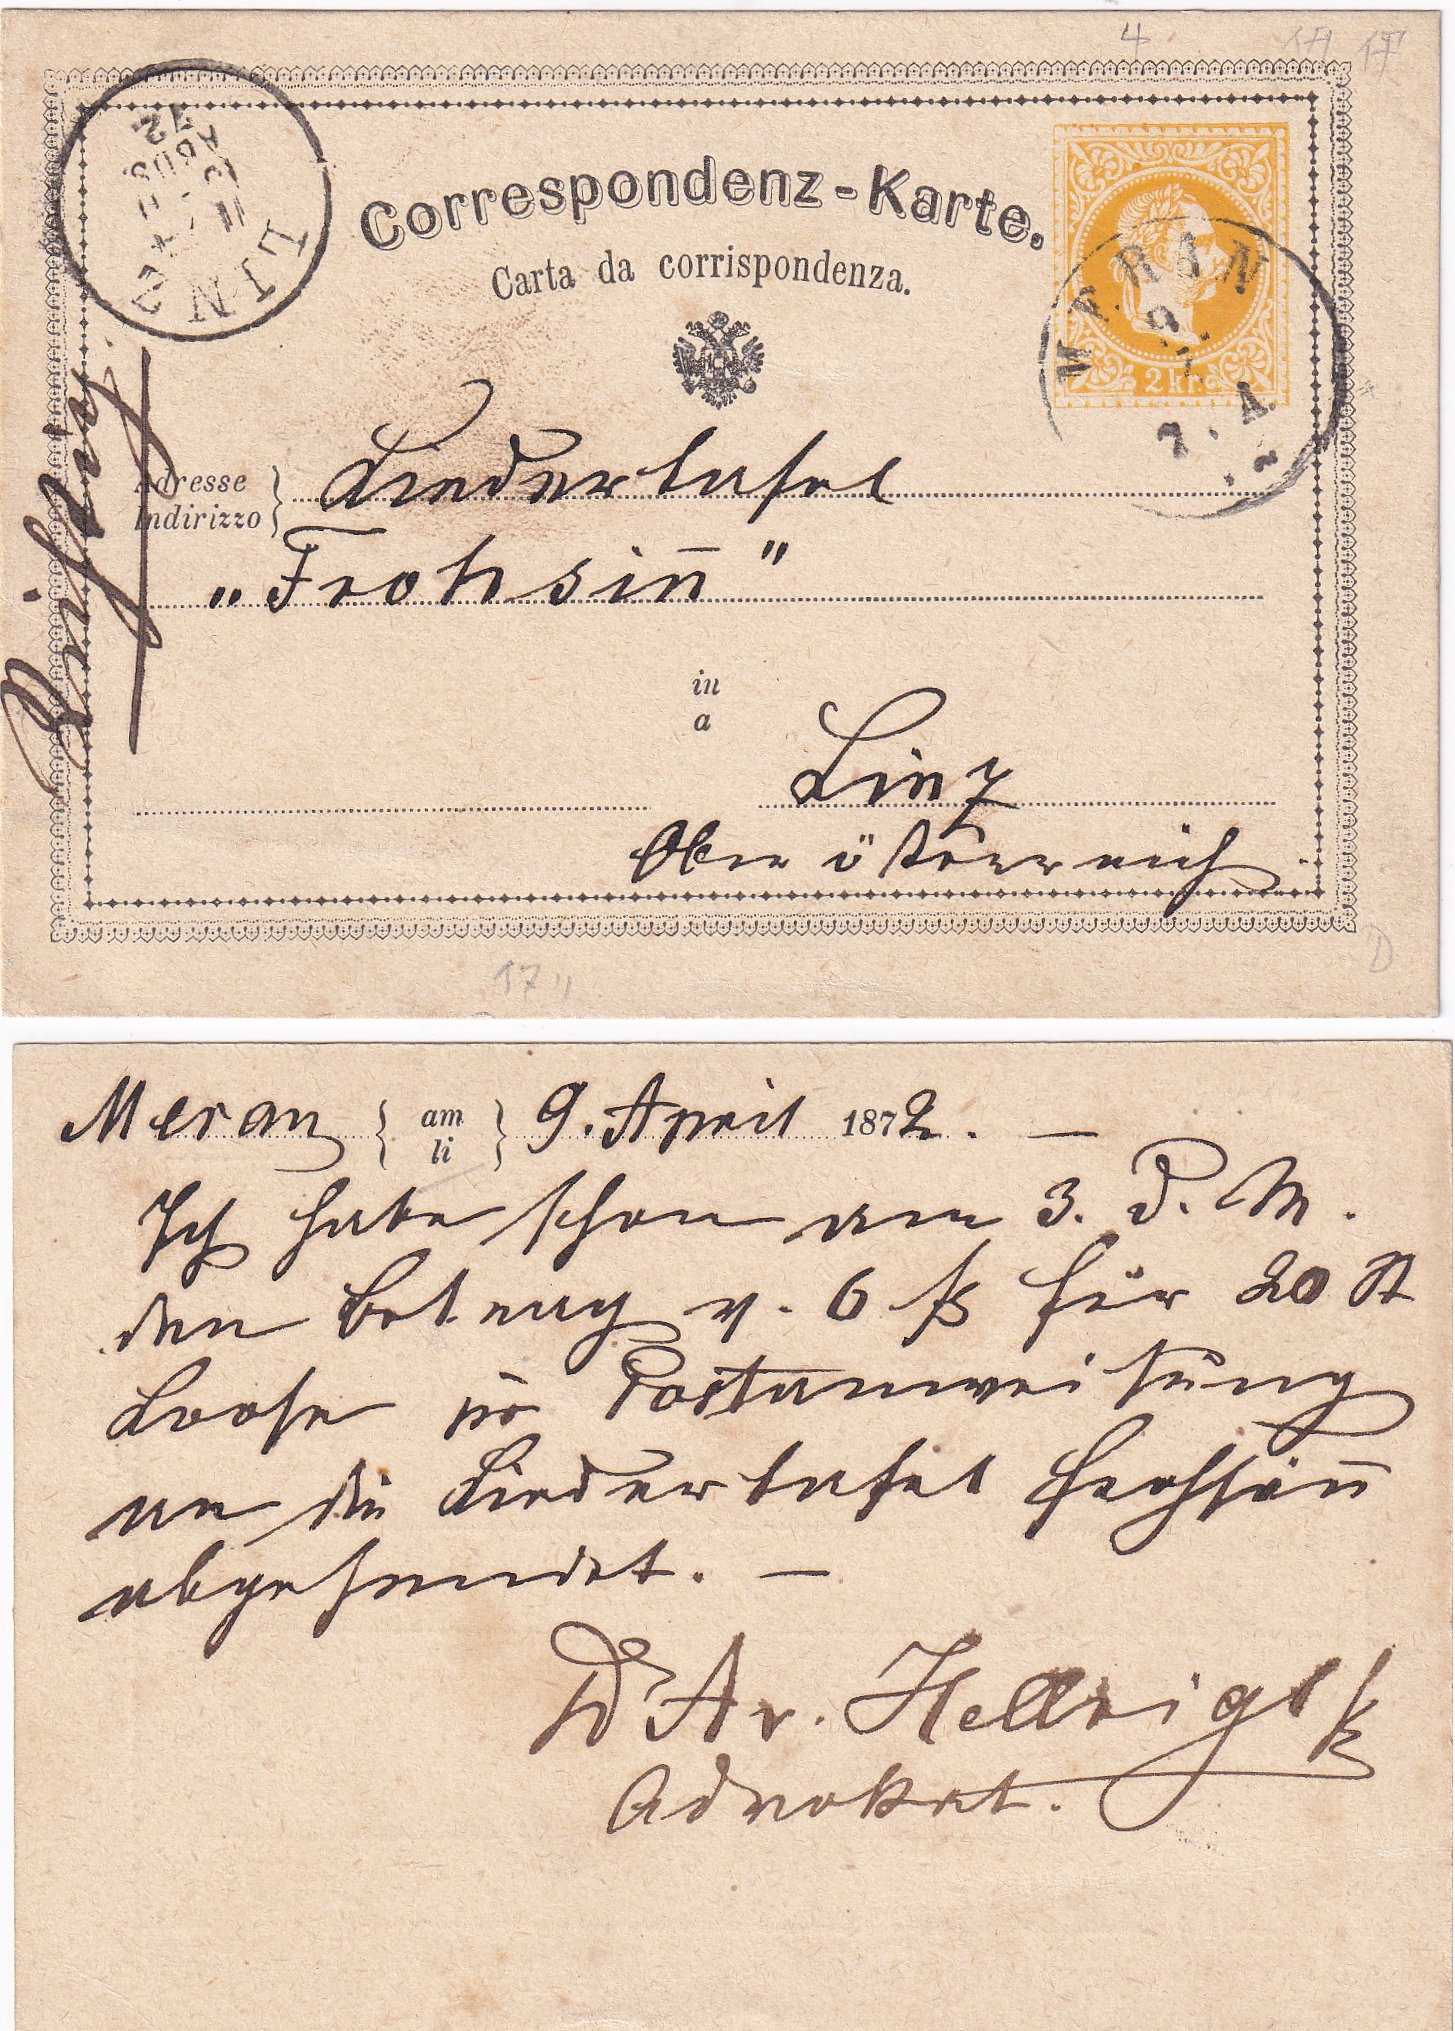 4
17
Correspondenz-Karte.
Carta da corrispondenza.
LINZ
MERAN
9.
2 kr.
Adresse
Indirizzo
Liedertafel
„Frohsin̄"
in
a
Linz
Oberösterreich
17
D
Meran am 9. April 1872. —
li
Ich habe schon am 3. d. M.
den Betrag v. 6 f für 20 St
Loose pr Postanweisung
an die Liedertafel Frohsin̄
abgesendet. —
Dr Av. Hellrigl
Advokat.